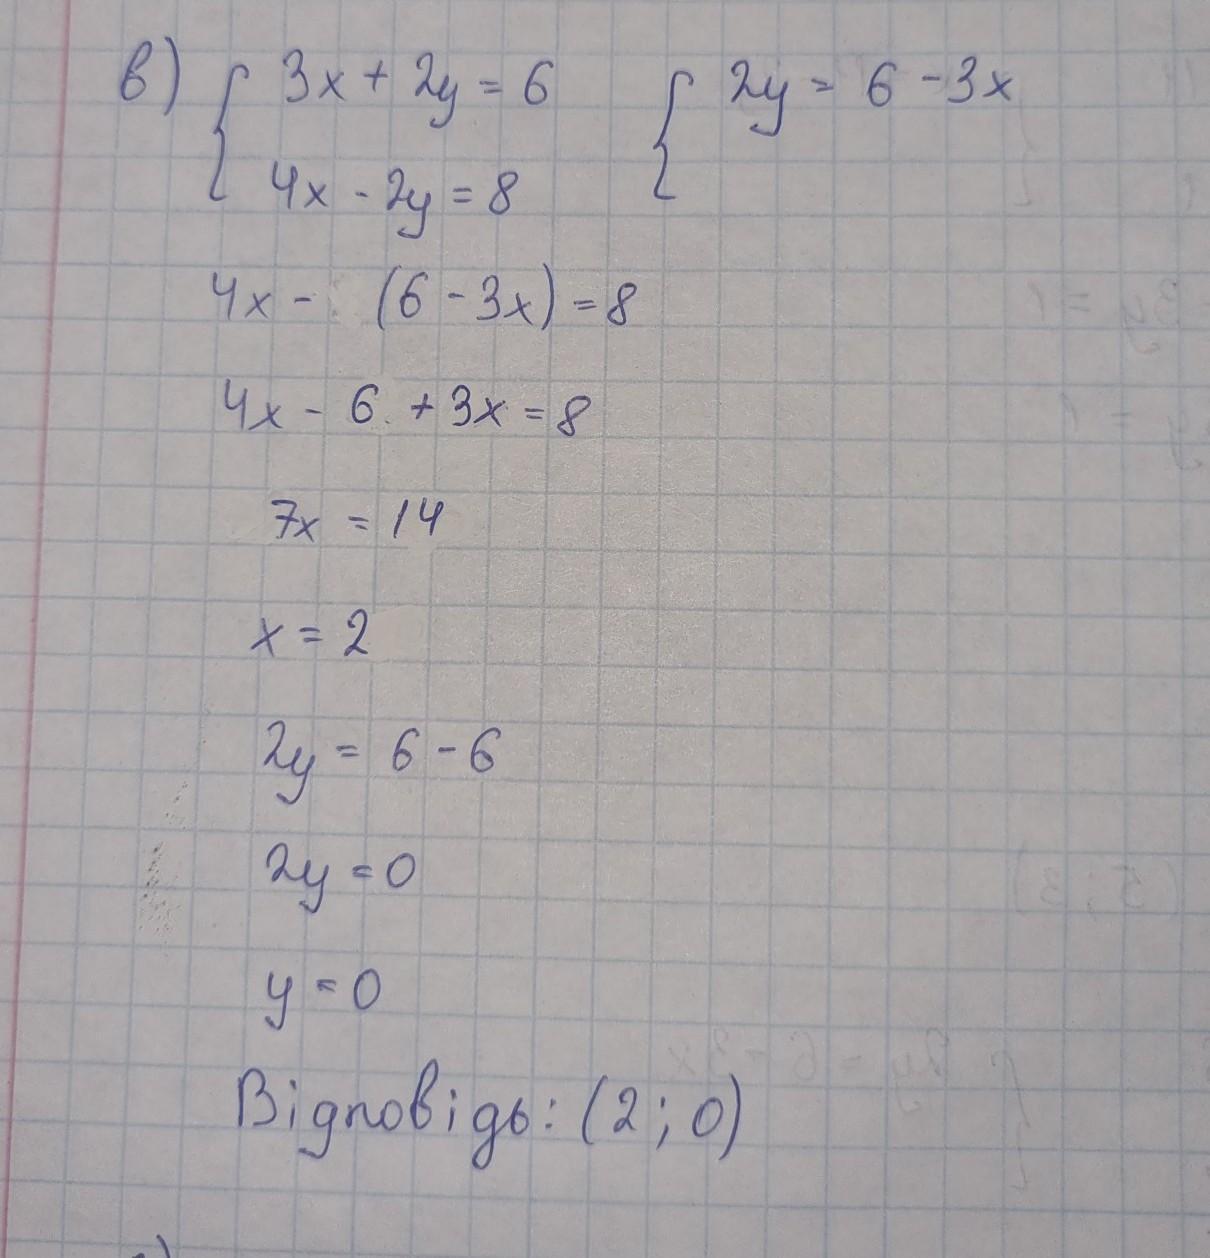 в) { 3x + 2y = 6 { 2y = 6 - 3x
4x - 2y = 8
4x - (6 - 3x) = 8
4x - 6 + 3x = 8
7x = 14
x = 2
2y = 6 - 6
2y = 0
y = 0
Відповідь: (2 ; 0)